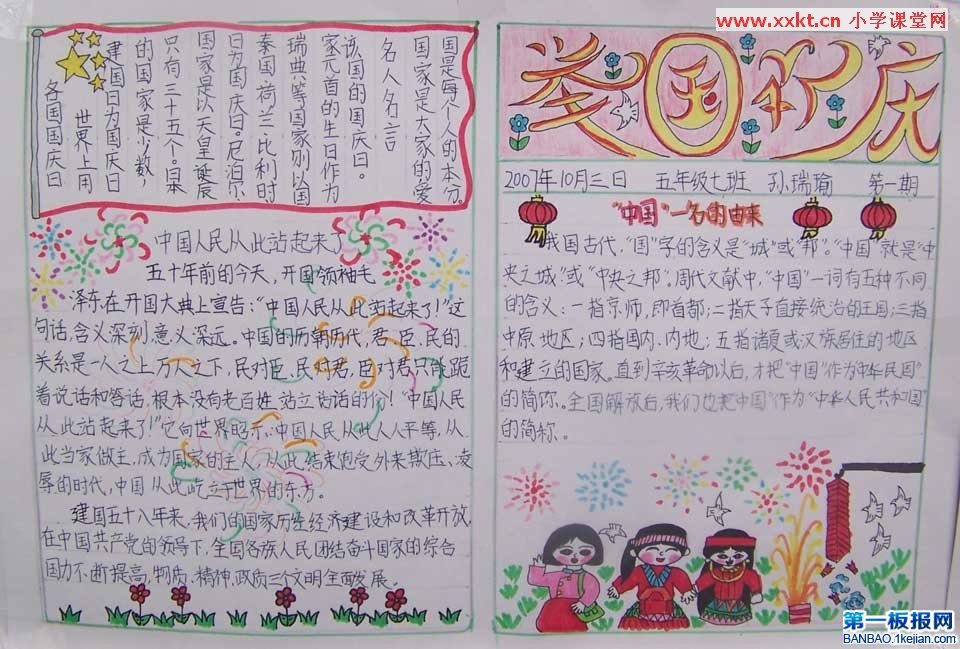 www.xxkt.cn 小学课堂网
各国国庆日
世界上用
建国日为国庆日
的国家是少数，
只有三十五个。日本
国家是以天皇诞辰
日为国庆日。尼泊尔
泰国、荷兰、比利时
瑞典等国家则以国
家元首的生日作为
该国的国庆日。
名人名言
国家是大家的爱
国是每个人的本分
中国人民从此站起来了
五十年前的今天，开国领袖毛
泽东在开国大典上宣告："中国人民从此站起来了！"这
句话，含义深刻，意义深远。中国的历朝历代，君、臣、民的
关系是一人之上万人之下，民对臣、民对君，臣对君只能跪
着说话和答话，根本没有老百姓站立说话的份！"中国人民
从此站起来了！"它向世界昭示：中国人民从此人人平等，从
此当家做主，成为国家的主人，从此，结束饱受外来欺压、凌
辱的时代，中国从此屹立于世界的东方。
建国五十八年来，我们的国家历经经济建设和改革开放，
在中国共产党的领导下，全国各族人民团结奋斗国家的综合
国力不断提高，物质、精神、政质三个文明全面发展。
举国欢庆
2007年10月三日 五年级七班 孙瑞瑜 第一期
"中国"一名的由来
我国古代，"国"字的含义是"城"或"邦"。"中国"就是"中
央之城"或"中央之邦"。周代文献中，"中国"一词有五种不同
的含义：一指京师，即首都；二指天子直接统治的王国；三指
中原地区；四指国内、内地；五指诸夏或汉族居住的地区
和建立的国家。直到辛亥革命以后，才把"中国"作为"中华民国"
的简称。全国解放后，我们也把"中国"作为"中华人民共和国"
的简称。
第一板报网
BANBAO.1kejian.com